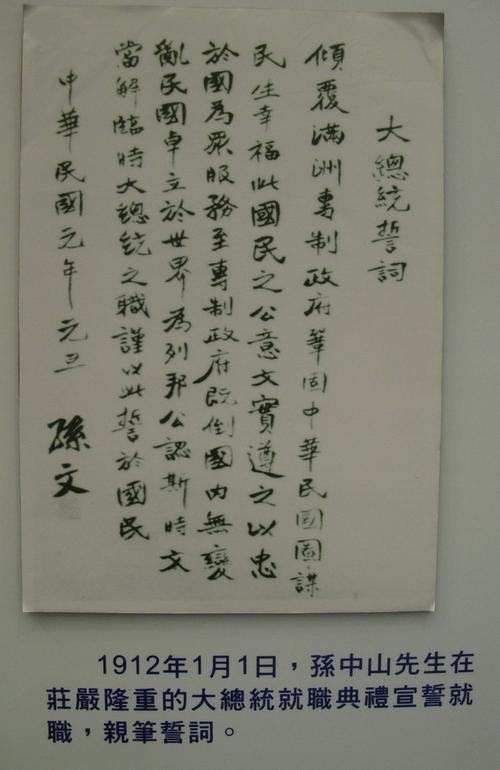 大總統誓詞
傾覆滿洲專制政府鞏固中華民國圖謀
民生幸福此國民之公意文實遵之以忠
於國為眾服務至專制政府既倒國內無變
亂民國卓立於世界為列邦公認斯時文
當解臨時大總統之職謹以此誓於國民
中華民國元年元旦
孫文
1912年1月1日，孫中山先生在
莊嚴隆重的大總統就職典禮宣誓就
職，親筆誓詞。